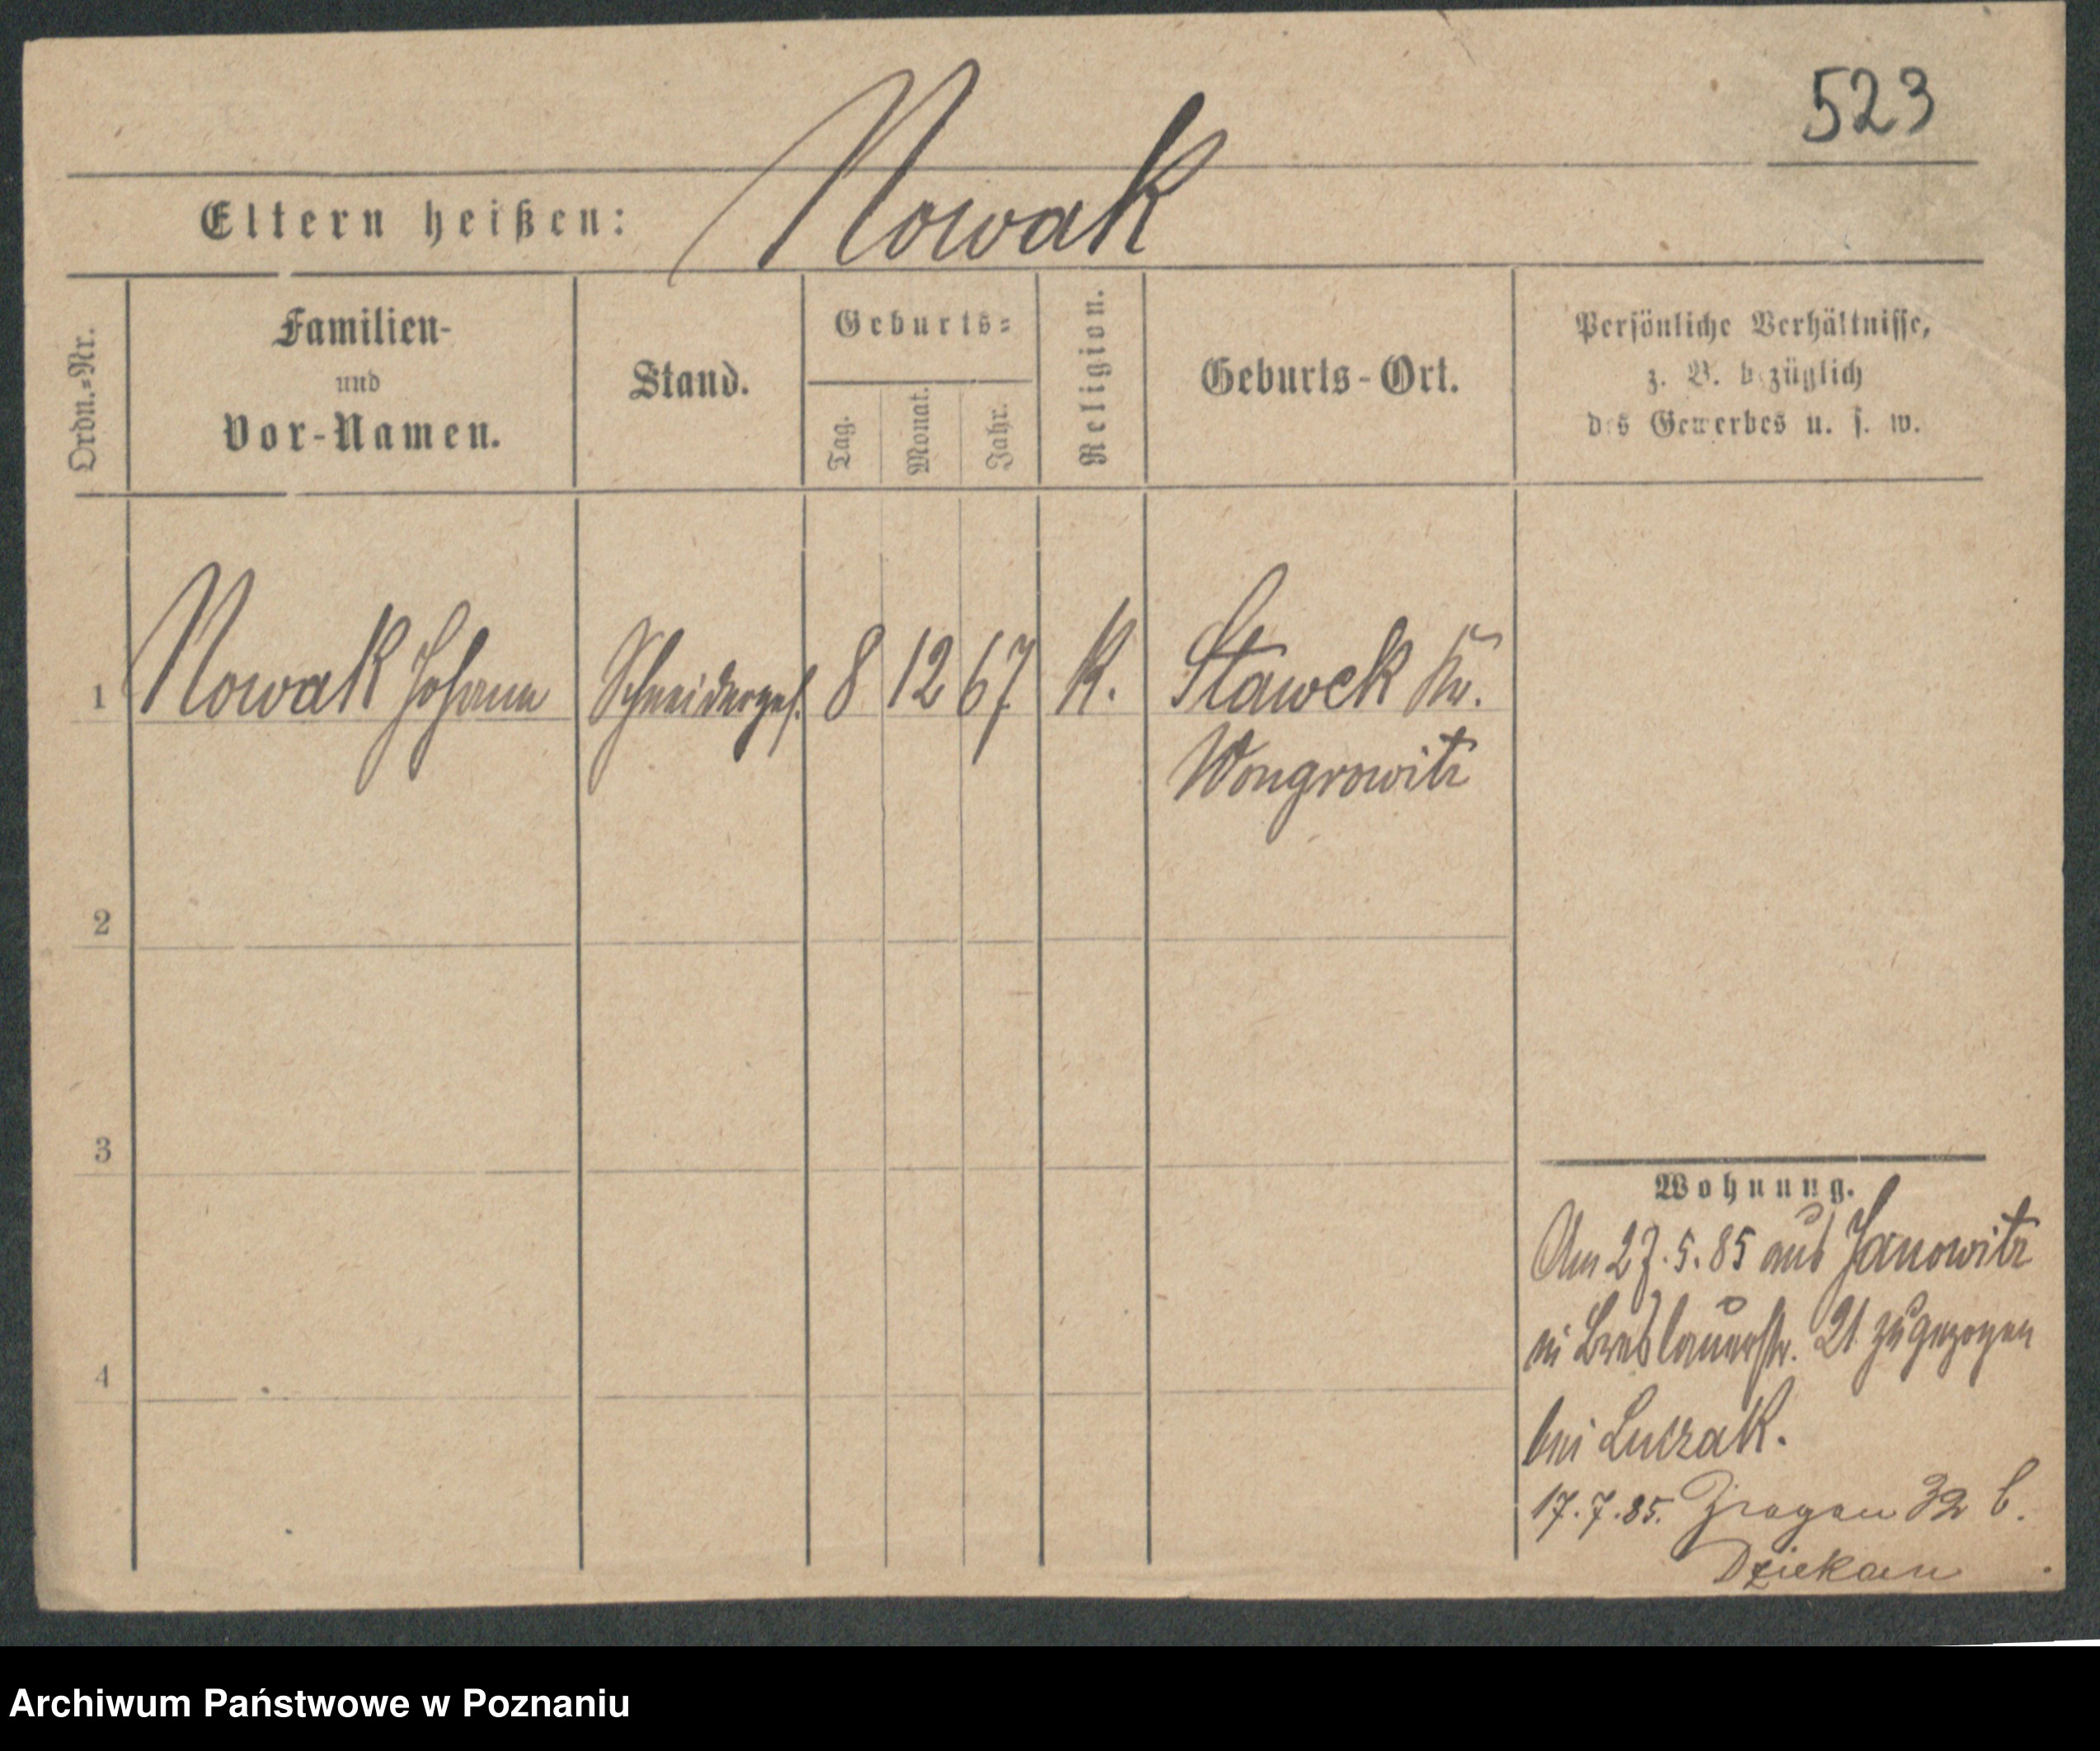 523
Nowak
Eltern heißen:
Ordn.=Nr.
Familien-
und
Vor-Namen.
Stand.
Geburts=
Tag.
Monat.
Jahr.
Religion.
Geburts-Ort.
Persönliche Verhältnisse,
z. B. bezüglich
des Gewerbes u. s. w.
1 Nowak Johann Schneiderges. 8 12 67 K. Stawek Kr.
Wongrowitz
2
3
4
Wohnung.
Am 27.5.85 aus Janowitz
in Breslauerstr. 21 zugezogen
bei Luczak.
17.7.85. 32 b.
Dziekan